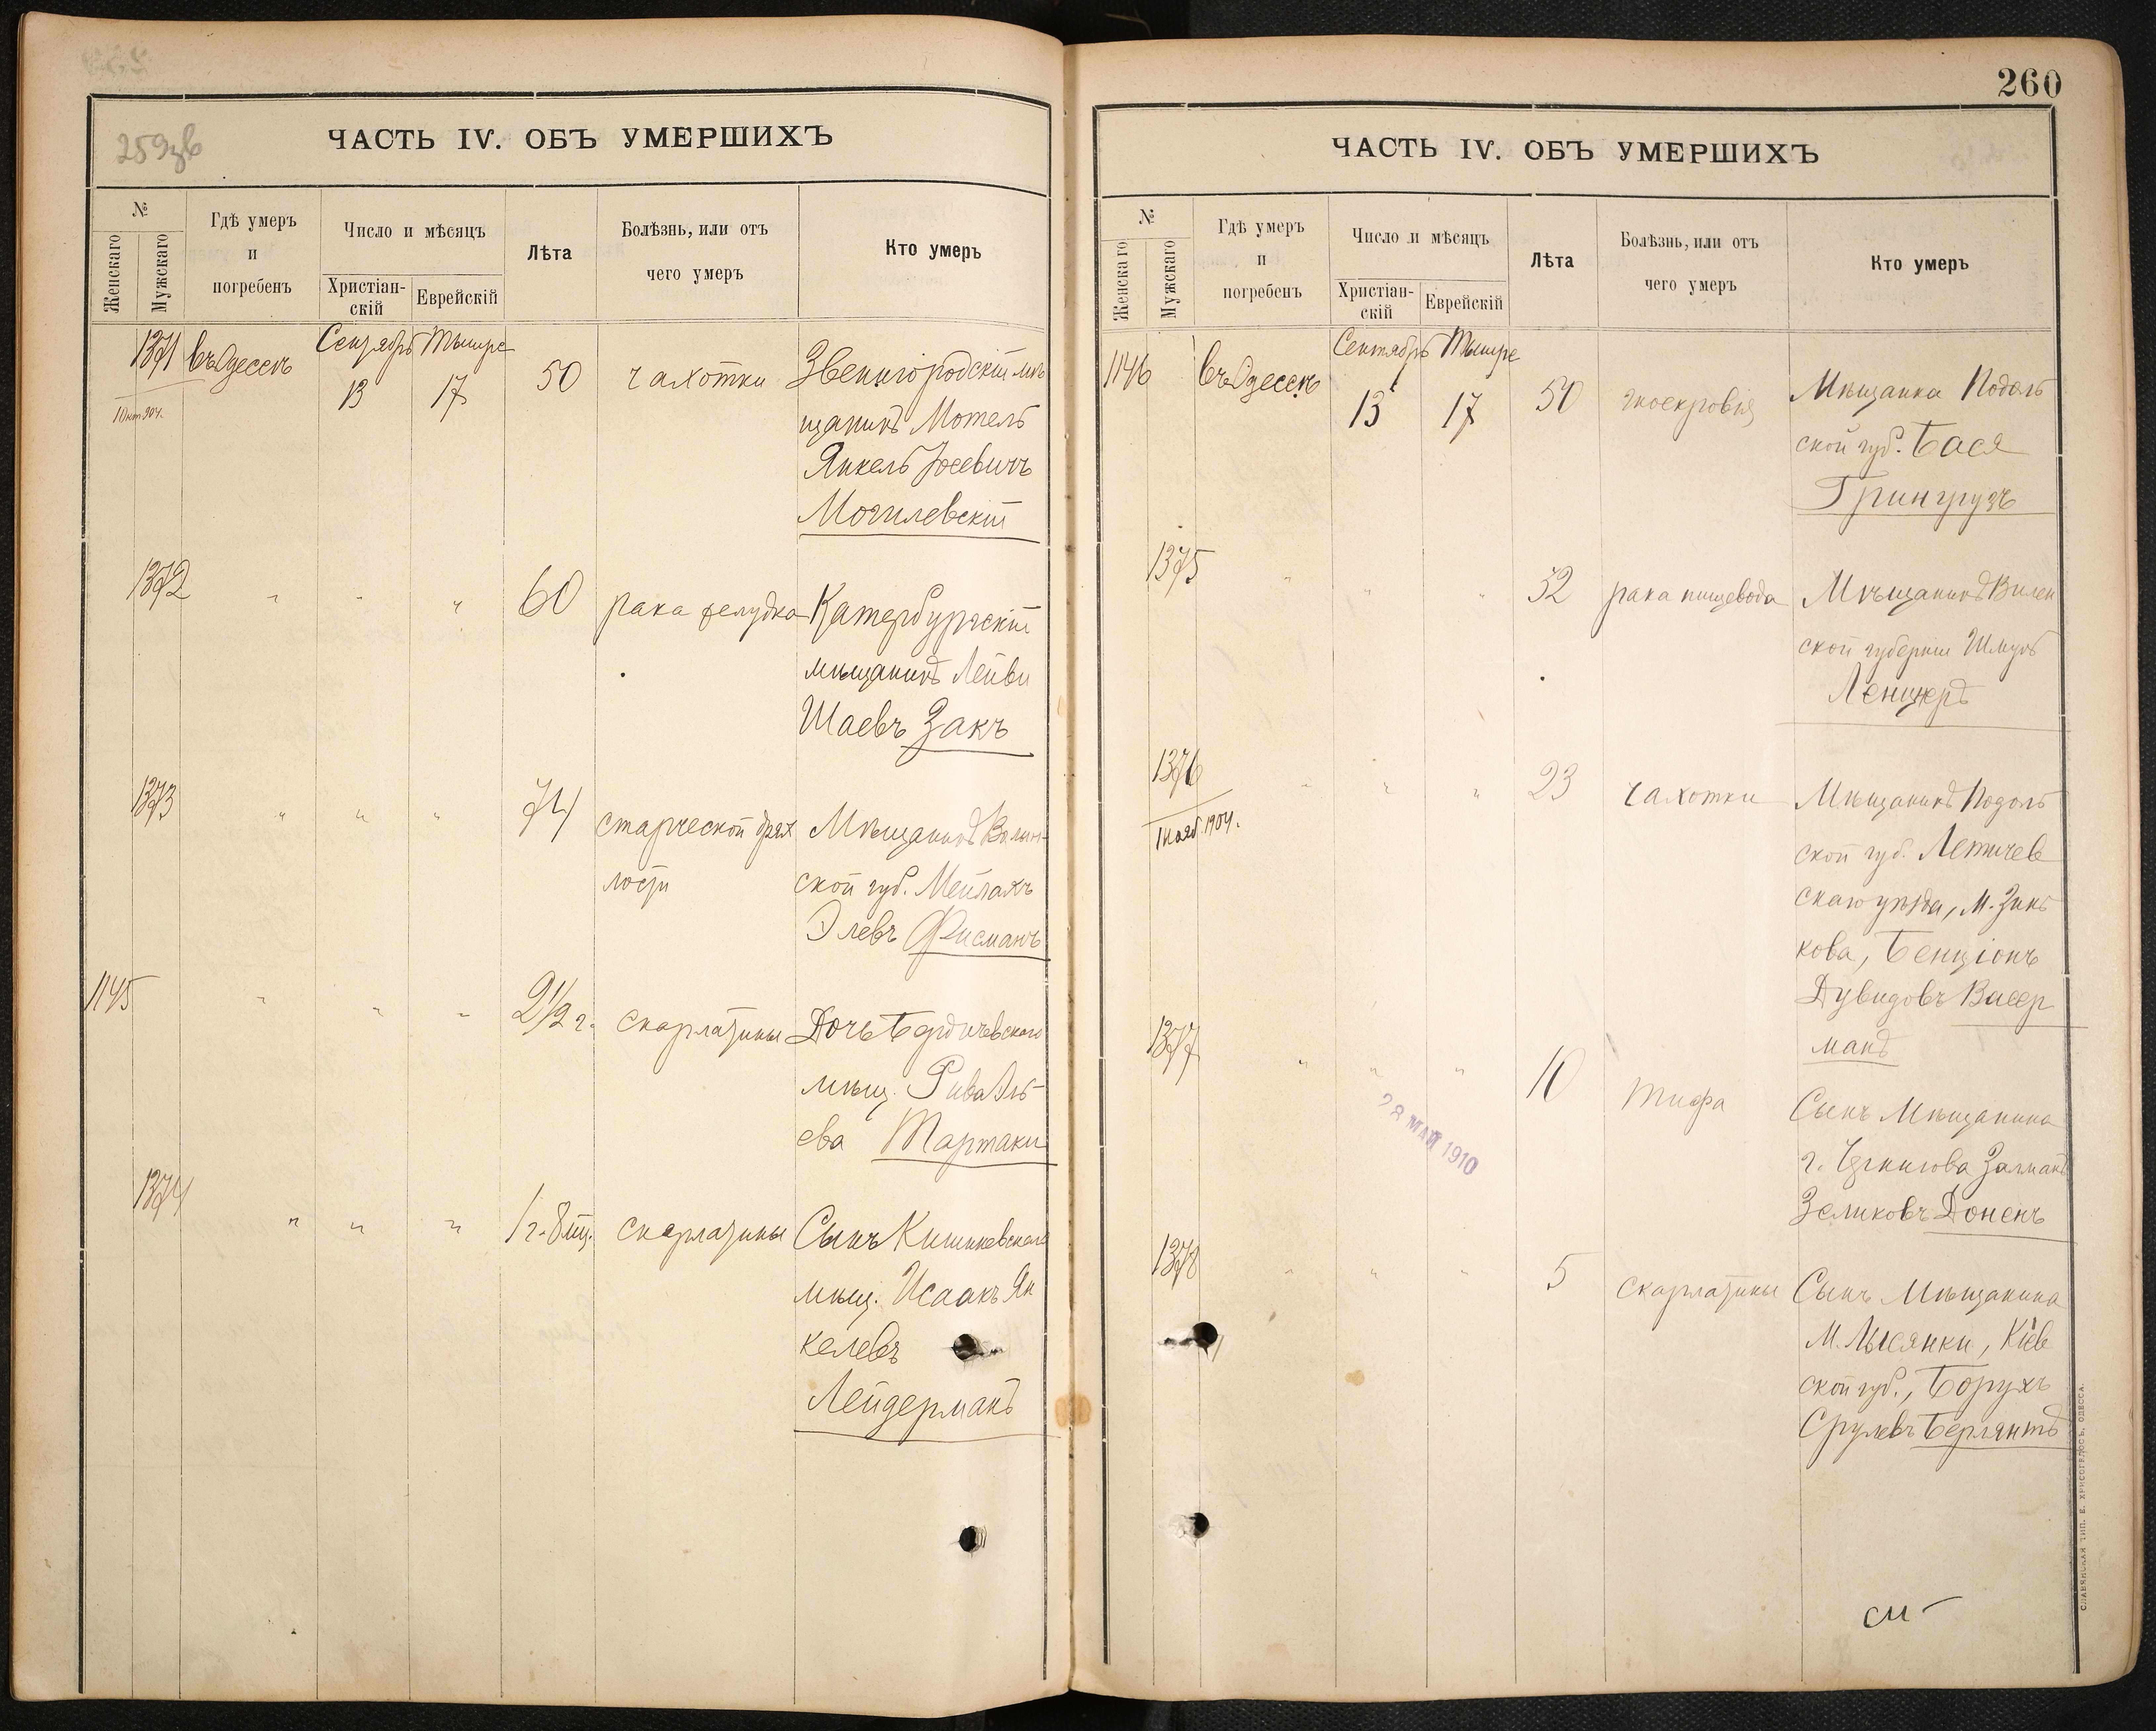 259зв
ЧАСТЬ IV. ОБЪ УМЕРШИХЪ
№
Женскаго
Мужскаго
Гдѣ умеръ
и
погребенъ
Число и мѣсяцъ
Христіан-
скій
Еврейскій
Лѣта
Болѣзнь, или отъ
чего умеръ
Кто умеръ
1371 въ Одессѣ Сентябрь Тишре
13 17 50 чахотки Звенигородскій мѣ
1 Окт. 904.
щанинъ Мотель
Янкель Іосевичъ
Могилевскій
1372 " " " 60 рака желудка Катербургскій
мѣщанинъ Лейви
Шаевъ Закъ
1373 " " " 74 старческой дрях Мѣщанинъ Волын-
лости ской губ. Мейлахъ
Элевъ Фисманъ
1145 " " " 2 1/2 г. скарлатины Дочь Бердичевскаго
мѣщ. Рива
ева Тартаки
1374 " " " 1 г. 8 мц. скарлатины Сынъ Кишиневскаго
мѣщ. Исаакъ Ян
келевъ
Лейдерманъ
260
ЧАСТЬ IV. ОБЪ УМЕРШИХЪ
№
Женскаго
Мужскаго
Гдѣ умеръ
и
погребенъ
Число и мѣсяцъ
Христіан-
скій
Еврейскій
Лѣта
Болѣзнь, или отъ
чего умеръ
Кто умеръ
1146 въ Одессѣ Сентябрь Тишре
13 17 50 гноекровія Мѣщанка Подоль
ской губ. Бася
Грингрузъ
1375 " " " 52 рака пищевода Мѣщанинъ Вилен
ской губерніи Шмуль
Ленцнеръ
1376 " " " 23 чахотки Мѣщанинъ Подоль
1 Нояб. 1904.
ской губ. Летичев
скаго уѣзда, м. Зинь
кова, Бенціонъ
Дувидовъ Васер
манъ
1377 " " " 10 тифа Сынъ Мѣщанина
28 МАЙ 1910
г. Чернигова Залманъ
Зеликовъ Доненъ
1378 " " " 5 скарлатины Сынъ Мѣщанина
М. Лысянки, Кіев
ской губ., Борухъ
Срулевъ Берлянтъ
см-
СЛАВЯНСКАЯ ТИП. Е. ХРИСОГЕЛОСЪ, ОДЕССА.